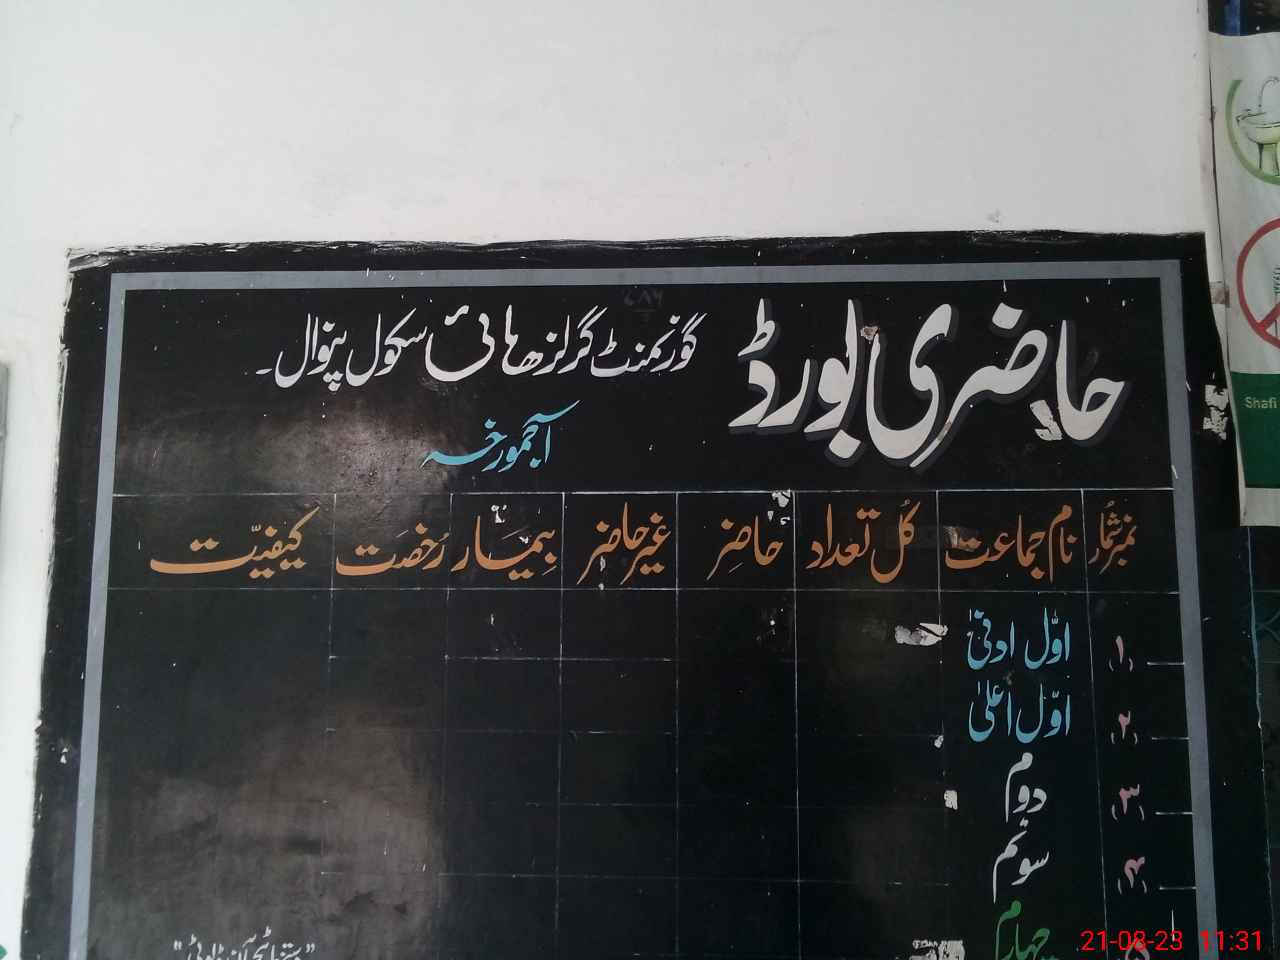 ۷۸۶
حاضری بورڈ
گورنمنٹ گرلز ھائی سکول پنوال۔
آجمورخہ
نمبر شمار نام جماعت کُل تعداد حاضِر غیر حاضر بِیمار رُخصَت کیفیّت
(۱) اوّل ادنیٰ
(۲) اوّل اعلیٰ
(۳) دوم
(۴) سوئم
چہارم
Shafi
21-08-23 11:31